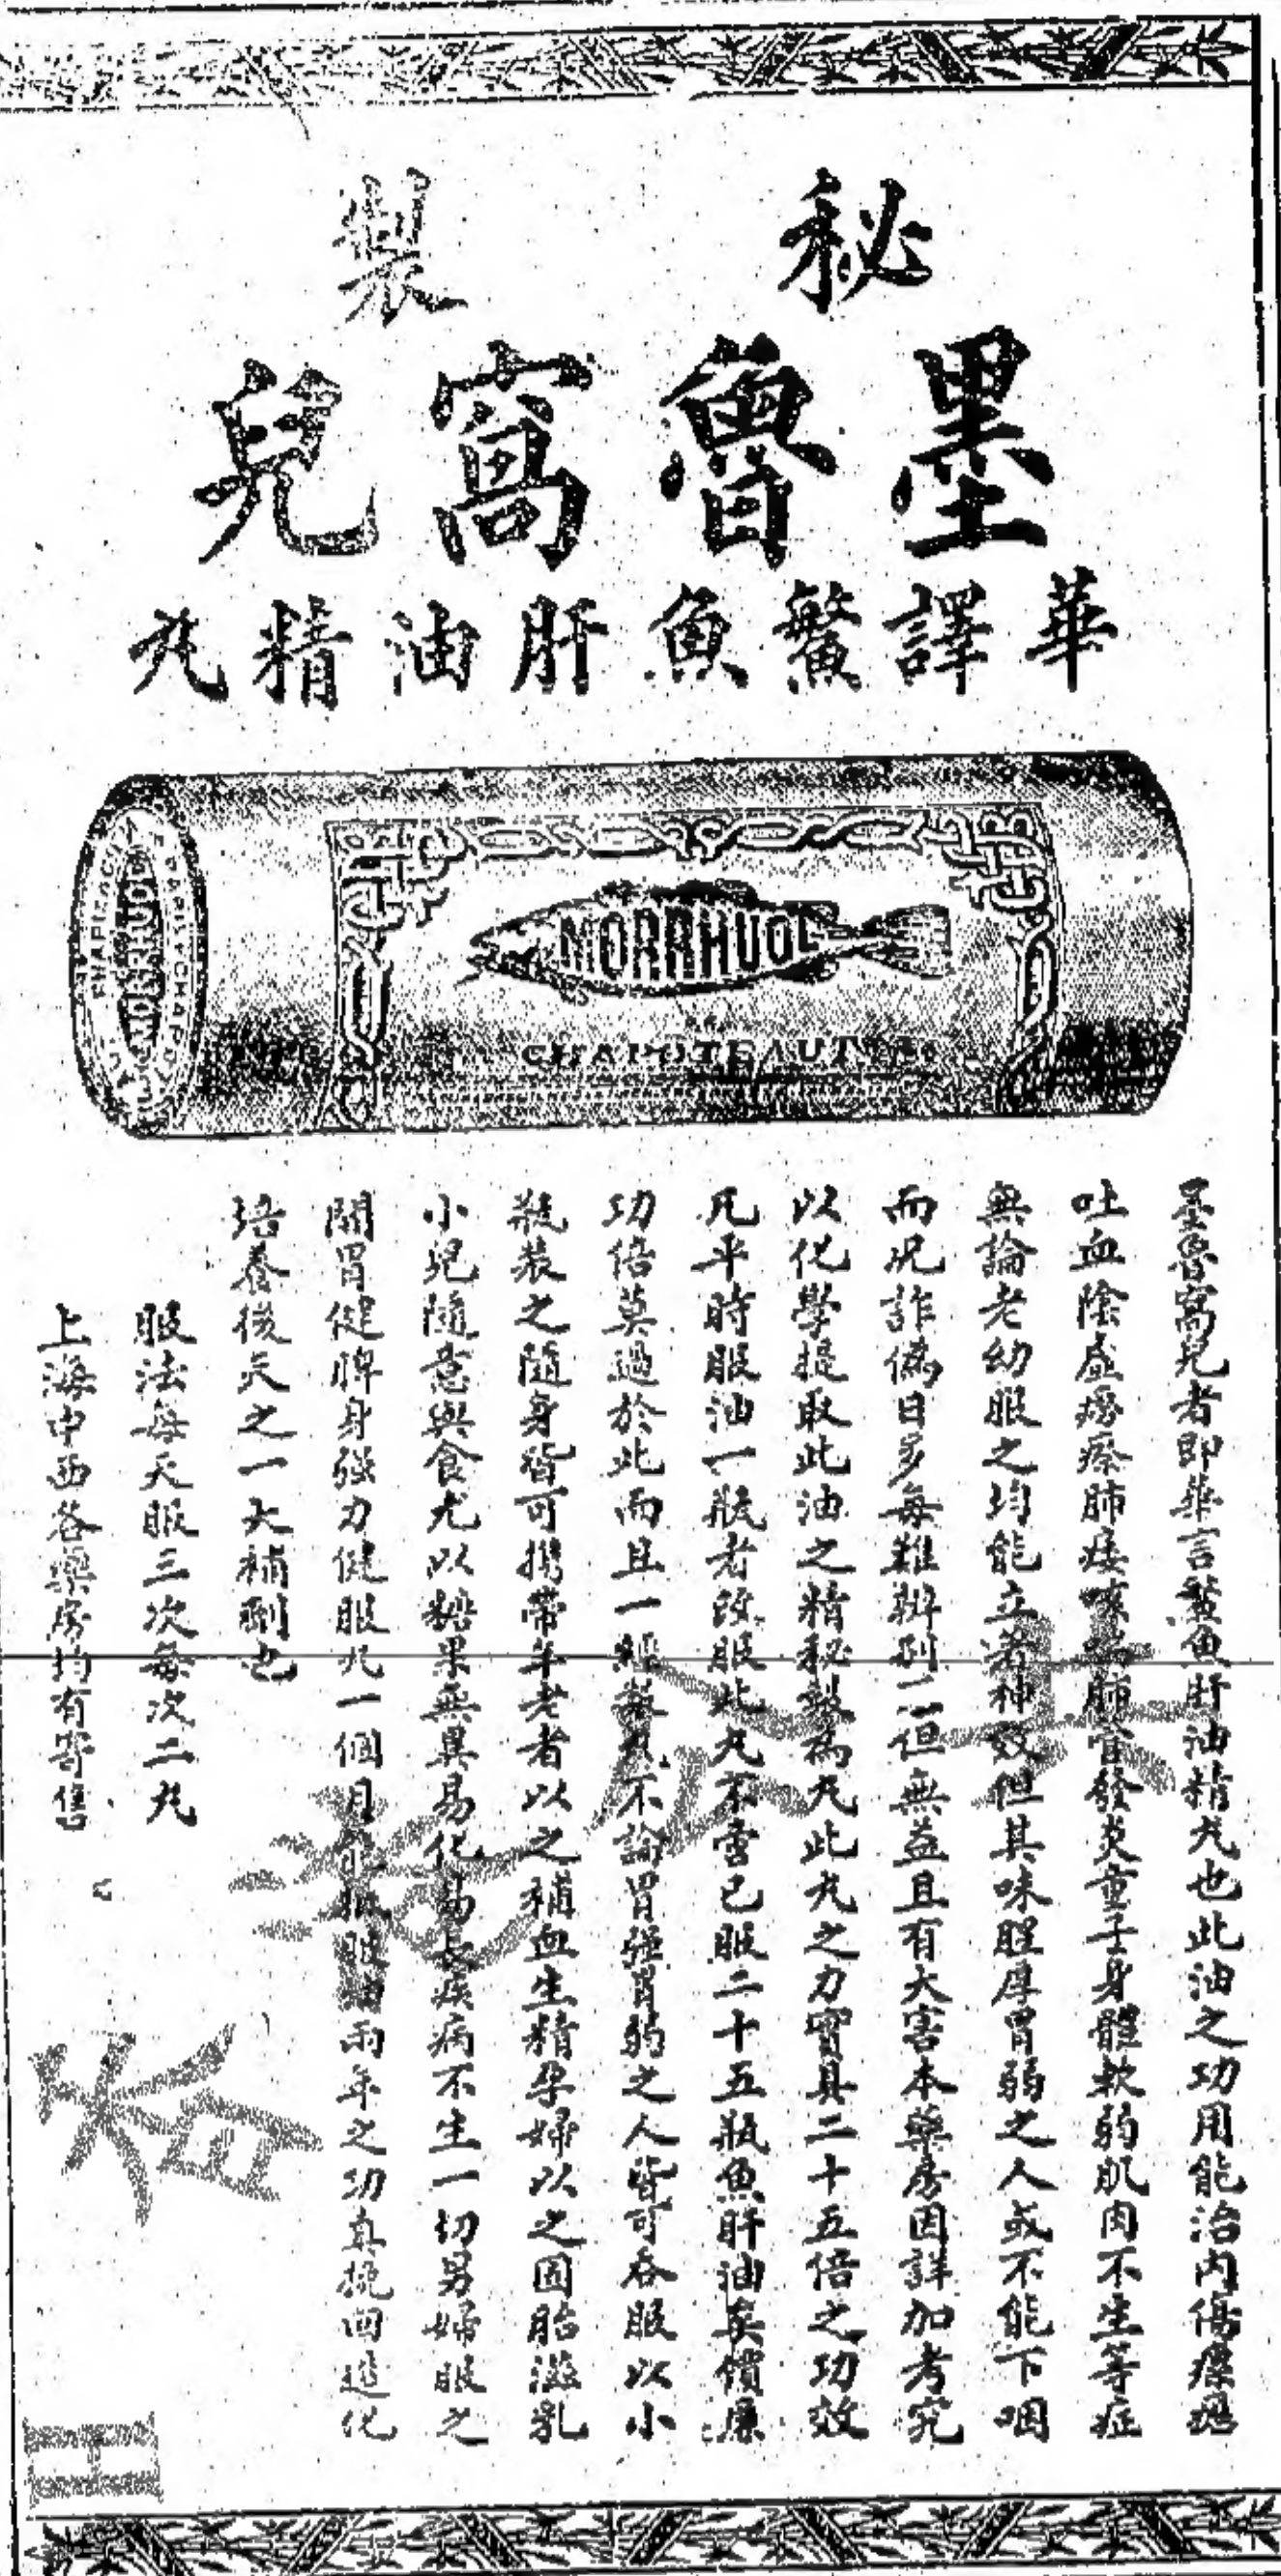 秘製
墨魯窩兒
華譯鱉魚肝油精丸
MORRHUOL
MORRHUOL
CHAPOTEAUT
墨魯窩兒者即華言鱉魚肝油精丸也此油之功用能治內傷瘰癧
吐血陰虛癆瘵肺痿咳嗽肺管發炎童子身體軟弱肌肉不生等症
無論老幼服之均能立著神效但其味腥厚胃弱之人或不能下咽
而況詐偽日多每難辨別不但無益且有大害本藥房因詳加考究
以化學提取此油之精秘製為丸此丸之力實具二十五倍之功效
凡平時服油一瓶者改服此丸不啻已服二十五瓶魚肝油矣價廉
功倍莫過於此而且一經不論胃強胃弱之人皆可吞服以小
瓶裝之隨身皆可攜帶年老者以之補血生精孕婦以之固胎滋乳
小兒隨意與食尤以糖果無異易化易長疾病不生一切男婦服之
開胃健脾身強力健服丸一個月服油兩年之功真挽回造化
培養後天之一大補劑也
服法每天服三次每次二丸
上海中西各藥房均有寄售